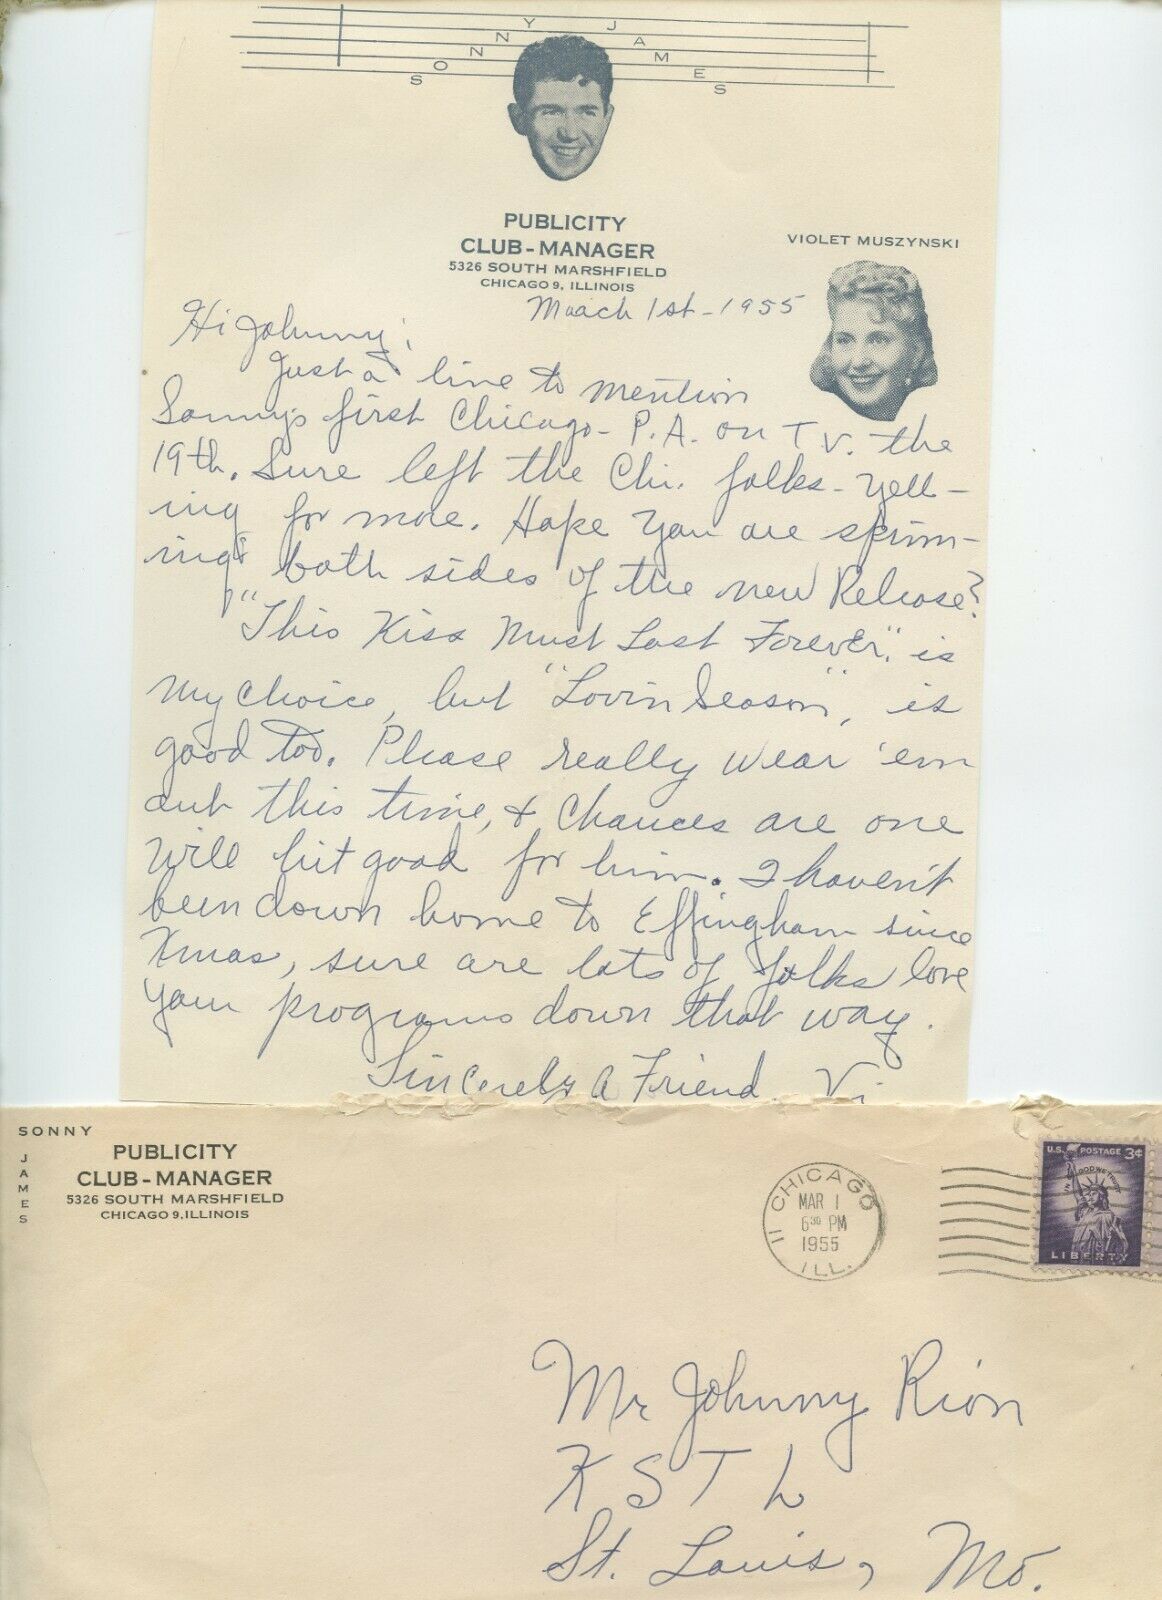 SONNY JAMES
PUBLICITY
CLUB-MANAGER
5326 SOUTH MARSHFIELD
CHICAGO 9, ILLINOIS
VIOLET MUSZYNSKI
March 1st - 1955
Hi Johnny,
Just a line to mention
Sonny's first Chicago - P.A. on T.V. the
19th. Sure left the Chi. folks - yell-
ing for more. Hope you are spinn-
ing both sides of the new Release?
"This Kiss Must Last Forever", is
my choice, but "Lovin Season", is
good too. Please really wear 'em
out this time, & chances are one
will hit good for him. I haven't
been down home to Effingham since
Xmas, sure are lots of folks love
your programs down that way.
Sincerely A Friend Vi
SONNY
JAMES
PUBLICITY
CLUB-MANAGER
5326 SOUTH MARSHFIELD
CHICAGO 9, ILLINOIS
CHICAGO
11
MAR 1
6 30 PM
1955
ILL.
U.S. POSTAGE 3¢
IN GOD WE TRUST
LIBERTY
Mr Johnny Rion
K S T L
St. Louis, Mo.